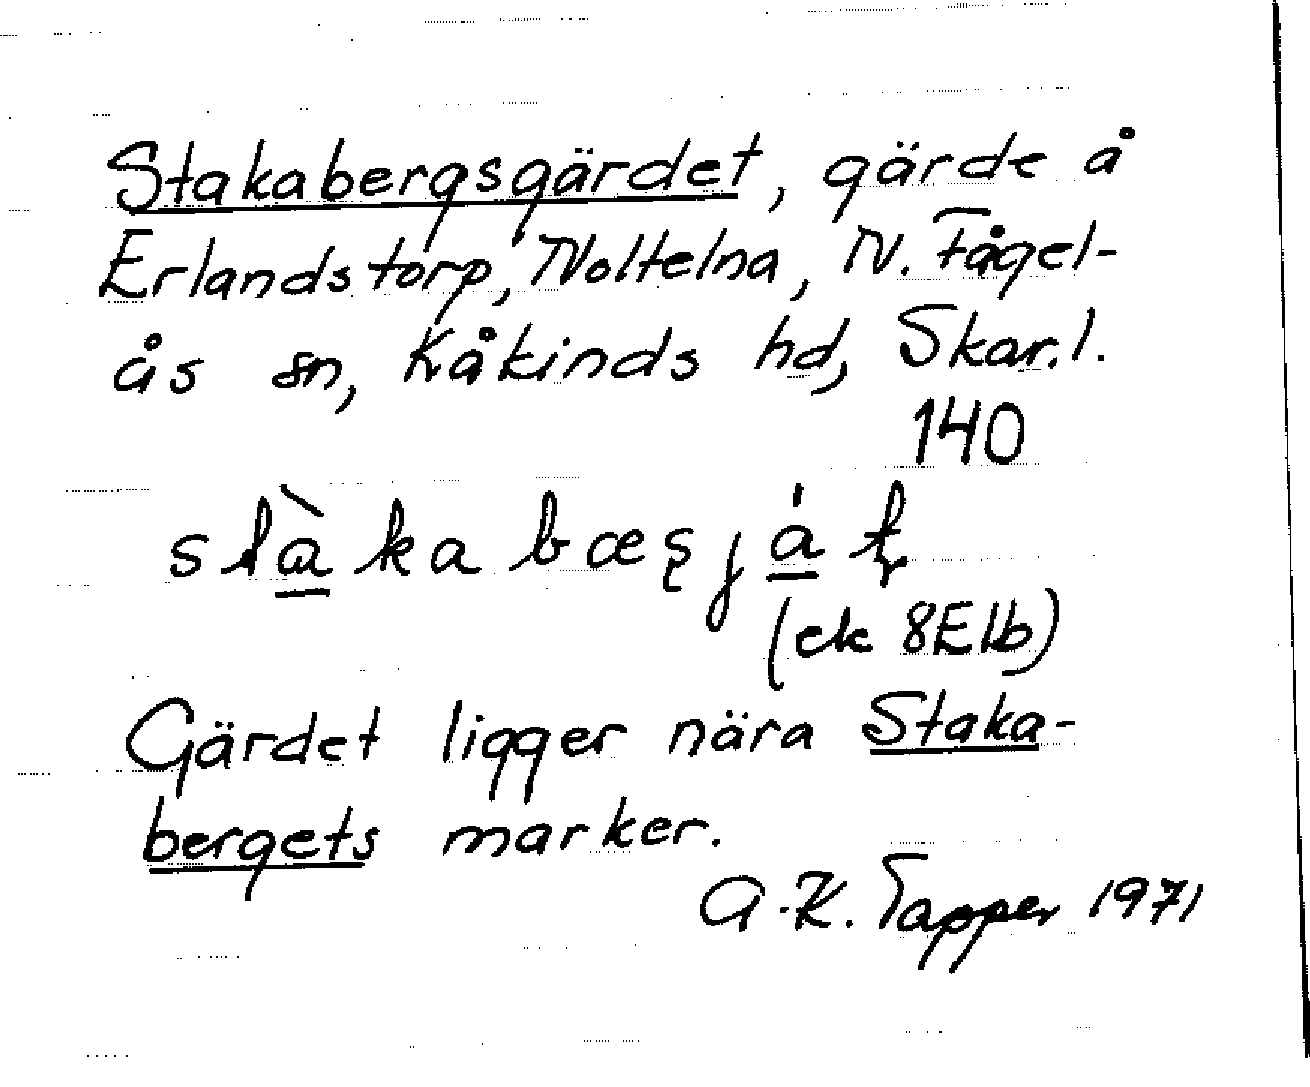 Stakabergsgärdet, gärde å
Erlandstorp, Noltelna, N. Fågel-
ås sn, Kåkinds hd, Skar. l.
140
stàka bæʂjáʈ
(ek 8E1b)
Gärdet ligger nära Staka-
bergets marker.
A.K. Tapper 1971